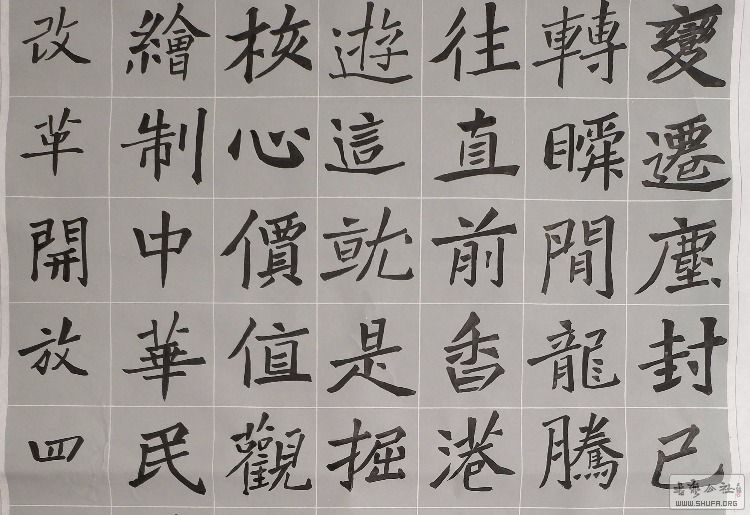 變遷塵封已
轉瞬間龍騰
往直前香港
遊這就是掘
核心價值觀
繪制中華民
改革開放四
WWW.SHUFA.ORG